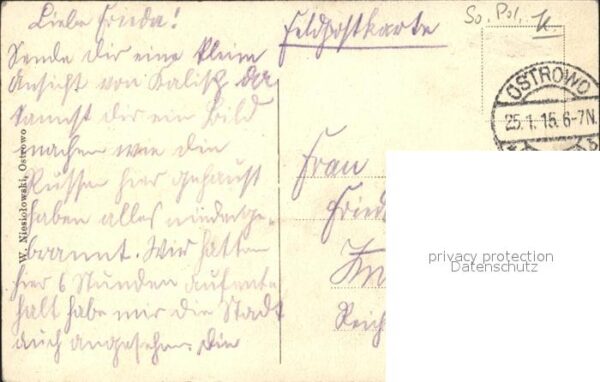 Liebe Frieda!
Sende dir eine kleine
Ansicht von Kalisz da
kannst dir ein Bild
machen wie die
Russen hier gehaust
haben alles niederge-
brannt. Wir hatten
hier 6 Stunden aufent
halt habe mir die Stadt
auch angesehen. Die
W. Niesiolowski, Ostrowo
Feldpostkarte
So. Pol.
OSTROWO
25.1.15.6-7N.
Frau
Fried
Reich
privacy protection
Datenschutz